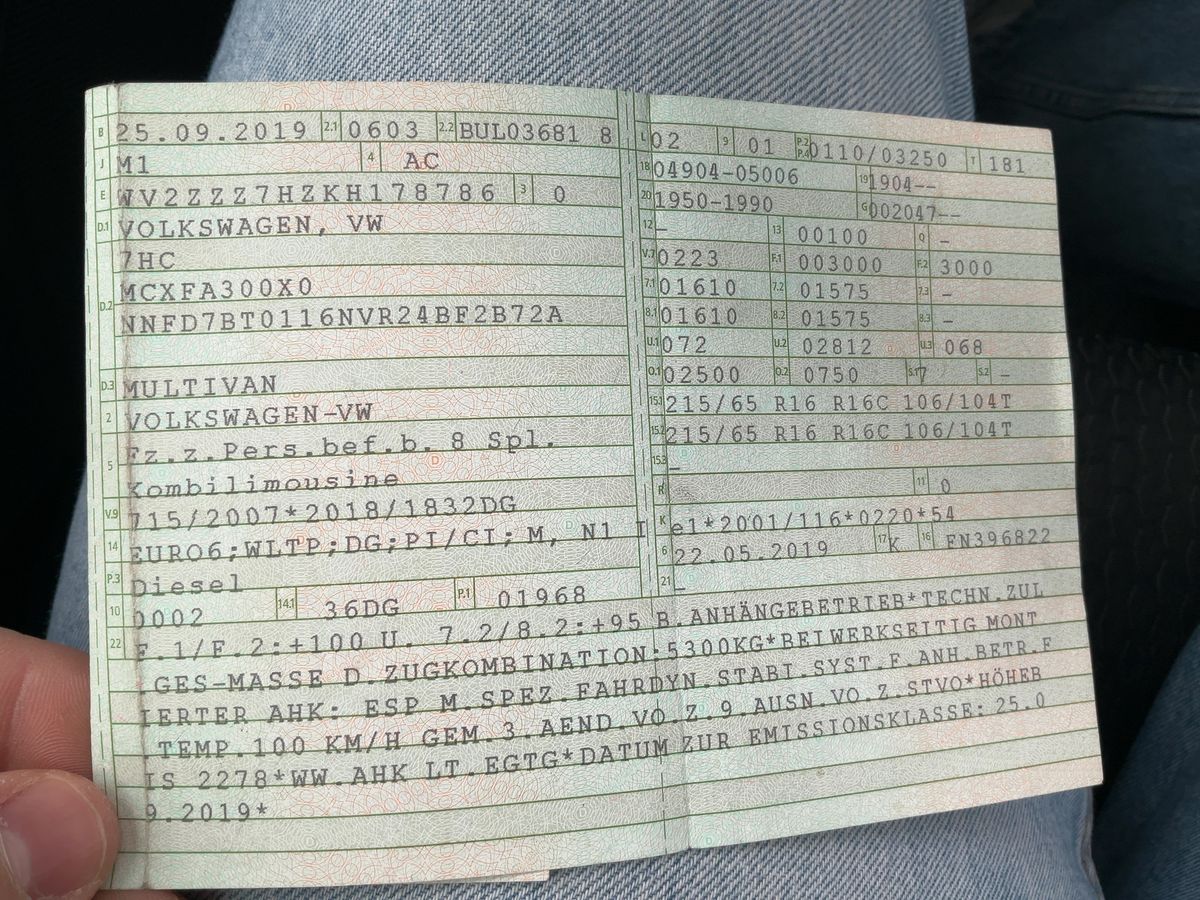 B 25.09.2019 2.1 0603 2.2 BUL03681 8
J M1 4 AC
E WV2ZZZ7HZKH178786 3 0
D.1 VOLKSWAGEN, VW
7HC
D.2 MCXFA300X0
NNFD7BT0116NVR24BF2B72A
D.3 MULTIVAN
2 VOLKSWAGEN-VW
5 Fz.z.Pers.bef.b. 8 Spl.
Kombilimousine
V.9 715/2007*2018/1832DG
14 EURO6;WLTP;DG;PI/CI; M, N1 I
P.3 Diesel
10 0002 14.1 36DG P.1 01968
L 02 9 01 P.2 P.4 0110/03250 T 181
18 04904-05006 19 1904--
20 1950-1990 G 002047--
12 - 13 00100 Q -
V.7 0223 F.1 003000 F.2 3000
7.1 01610 7.2 01575 7.3 -
8.1 01610 8.2 01575 8.3 -
U.1 072 U.2 02812 U.3 068
O.1 02500 O.2 0750 S.1 7 S.2 -
15.1 215/65 R16 R16C 106/104T
15.2 215/65 R16 R16C 106/104T
15.3 -
R 11 0
K e1*2001/116*0220*54
6 22.05.2019 17 K 16 FN396822
21 -
22 F.1/F.2:+100 U. 7.2/8.2:+95 B.ANHÄNGEBETRIEB*TECHN.ZUL
.GES-MASSE D.ZUGKOMBINATION:5300KG*BEI WERKSEITIG MONT
IERTER AHK: ESP M.SPEZ.FAHRDYN.STABI.SYST.F.ANH.BETR.F
.TEMP.100 KM/H GEM.3.AEND.VO.Z.9.AUSN.VO.Z.STVO*HÖHE B
IS 2278*WW.AHK LT.EGTG*DATUM ZUR EMISSIONSKLASSE: 25.0
9.2019*